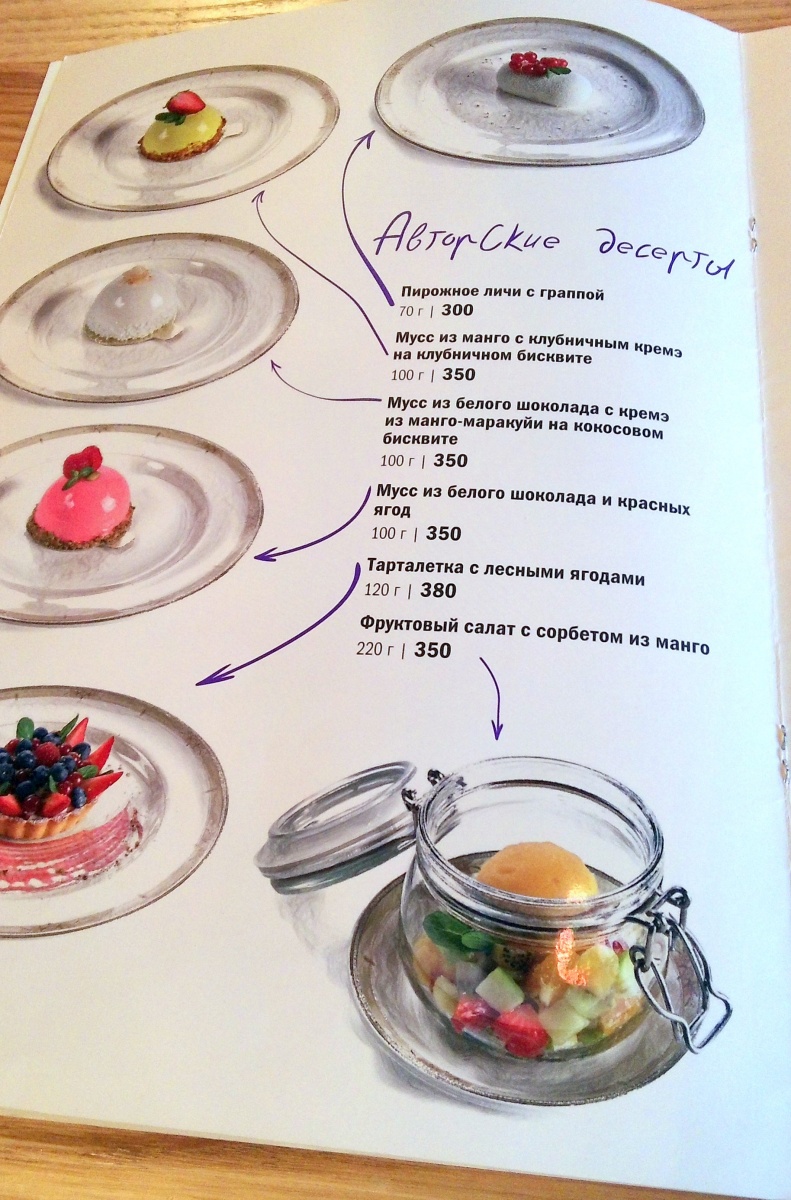 Авторские десерты
Пирожное личи с граппой
70 г | 300
Мусс из манго с клубничным кремэ
на клубничном бисквите
100 г | 350
Мусс из белого шоколада с кремэ
из манго-маракуйи на кокосовом
бисквите
100 г | 350
Мусс из белого шоколада и красных
ягод
100 г | 350
Тарталетка с лесными ягодами
120 г | 380
Фруктовый салат с сорбетом из манго
220 г | 350